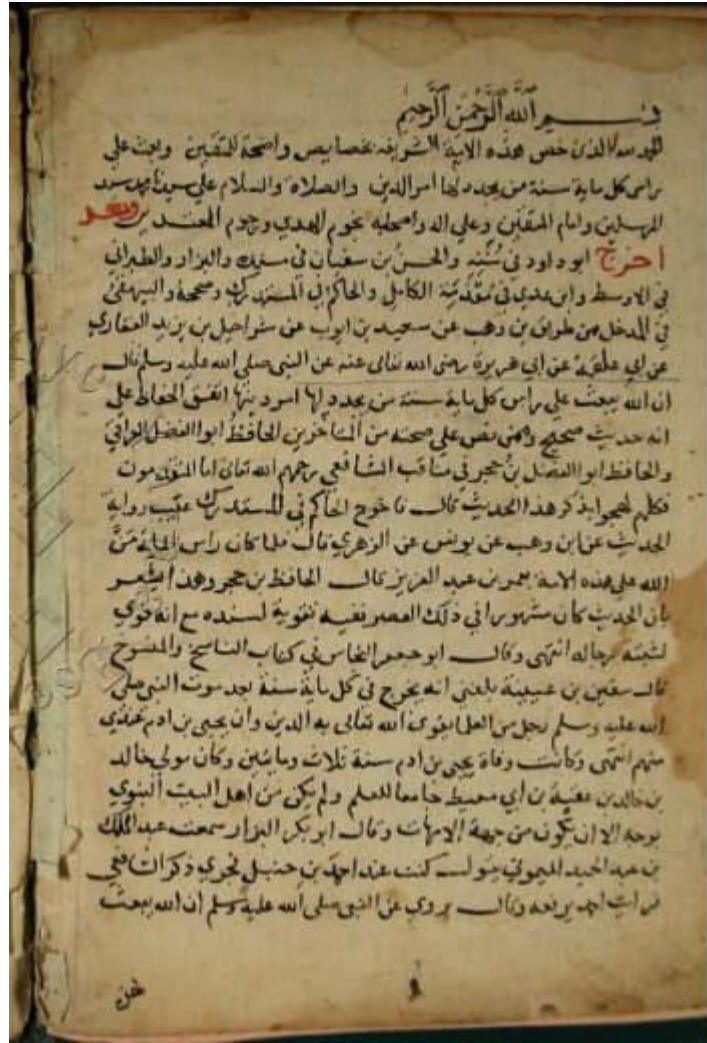 بسم الله الرحمن الرحيم
الحمد لله الذي خص هذه الامة الشريفة بخصايص واضحة للمتقين وبعث على
راس كل ماية سنة من يجدد لها امر الدين والصلاة والسلام على سيدنا محمد سيد
المرسلين وامام المتقين وعلى اله واصحابه نجوم الهدي ورجوم المعتدين وبعد
اخرج ابو داود في سننه والحسن بن سفيان في مسنده والبزار والطبراني
في الاوسط وابن عدي في مقدمة الكامل والحاكم في المستدرك وصححه والبيهقي
في المدخل من طريق بن وهب عن سعيد بن ايوب عن شراحيل بن يزيد المعافري
عن ابي علقمة عن ابي هريرة رضى الله تعالى عنه عن النبي صلى الله عليه وسلم قال
ان الله يبعث على راس كل ماية سنة من يجدد لها امر دينها اتفق الحفاظ على
انه حديث صحيح وممن نص على صحته من المتأخرين الحافظ ابوا الفضل العراقي
والحافظ ابوا الفضل بن حجر في مناقب الشافعي رحمهم الله تعالى اما المتقدمون
فكلهم لهجوا بذكر هذا الحديث قال فاخرج الحاكم في المستدرك عقب رواية
الحديث عن ابن وهب عن يونس عن الزهري قال فلما كان راس الماية مَنَّ
الله على هذه الامة بعمر بن عبد العزيز قال الحافظ بن حجر وهذا يشعر
بان الحديث كان مشهورا في ذلك العصر ففيه تقوية لسنده مع انه قوي
لثقة رجاله انتهى وقال ابو جعفر النحاس في كتاب الناسخ والمنسوخ
قال سفين بن عيينة بلغني انه يخرج في كل ماية سنة بعد موت النبي صلى
الله عليه وسلم رجل من العلما يقوى الله تعالى به الدين وان يحيى بن ادم عندي
منهم انتهى وكانت وفاة يحيى بن ادم سنة ثلاث ومايتين وكان مولى خالد
بن خالد بن عقبة بن ابي معيط جامعا للعلم ولم يكن من اهل البيت النبوي
بوجه الا ان يكون من جهة الامهات وقال ابو بكر البزار سمعت عبد الملك
بن عبد الحميد الميموني يقول كنت عند احمد بن حنبل فجرى ذكر الشافعي
فرايت احمد يرفعه وقال يروي عن النبي صلى الله عليه وسلم ان الله يبعث